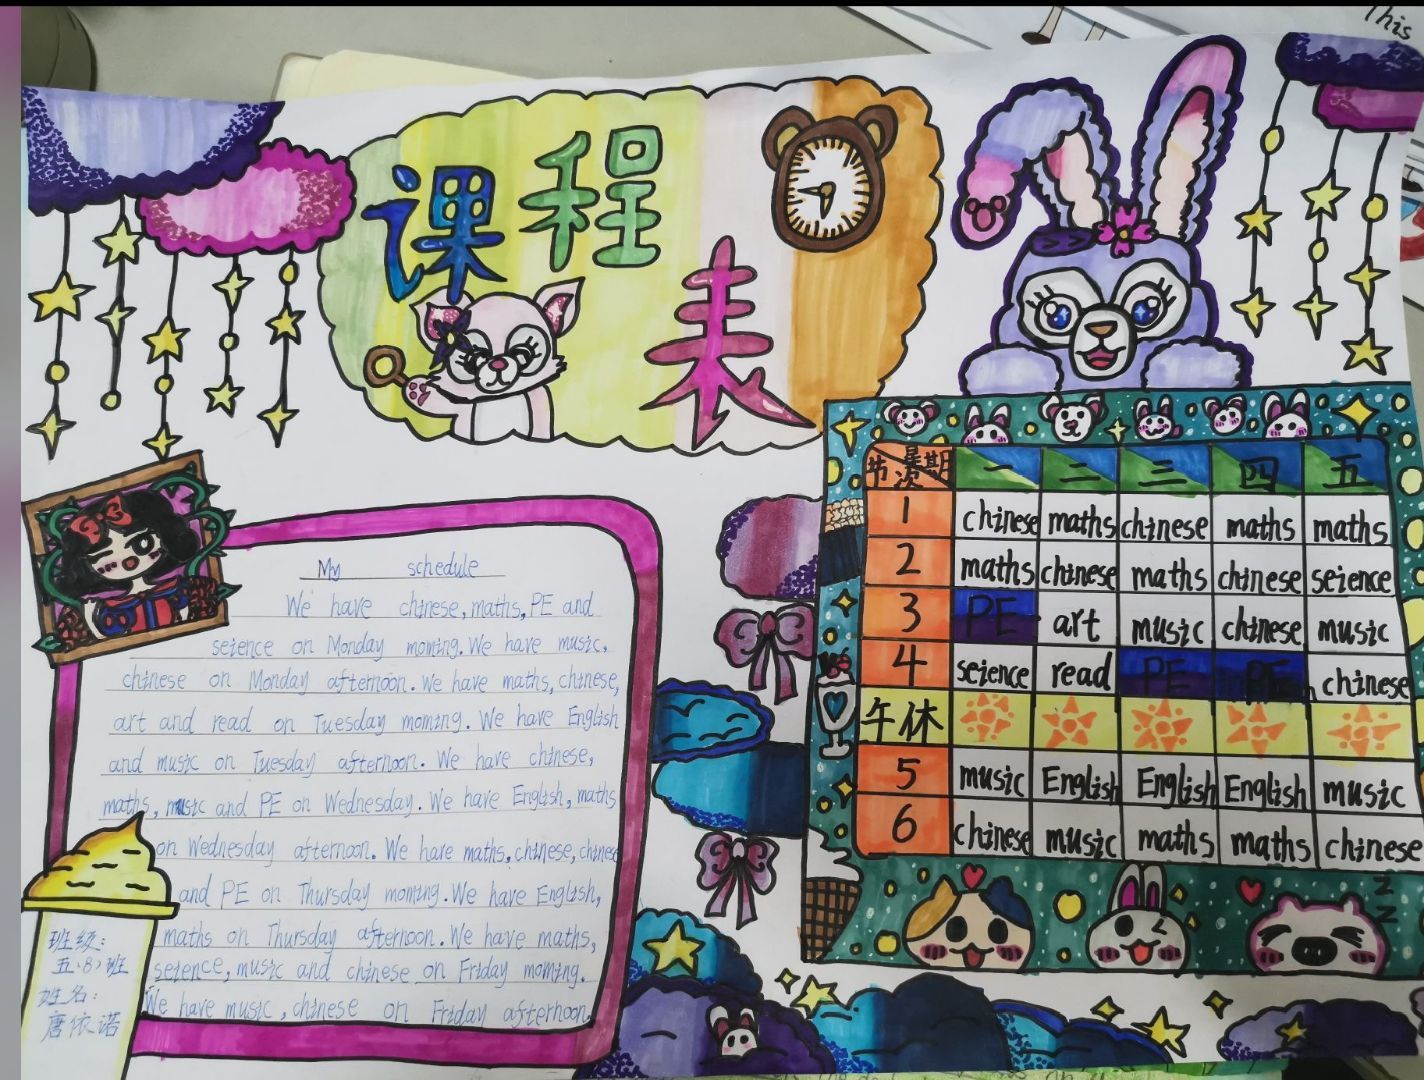 This
课程表
My schedule
We have chinese, maths, PE and
seience on Monday moming. We have music,
chinese on Monday afternoon. We have maths, chinese,
art and read on Tuesday moming. We have English
and music on Tuesday afternoon. We have chinese,
maths, music and PE on Wednesday. We have English, maths
on Wednesday afternoon. We have maths, chinese, chinese
and PE on Thursday moming. We have English,
maths on Thursday afternoon. We have maths,
seience, music and chinese on Friday moming.
We have music, chinese on Friday afternoon.
班级:
五.8.班
姓名:
唐依诺
节次 星期 一 二 三 四 五
1 chinese maths chinese maths maths
2 maths chinese maths chinese seience
3 PE art music chinese music
4 seience read PE PE chinese
午休
5 music English English English music
6 chinese music maths maths chinese
z
z